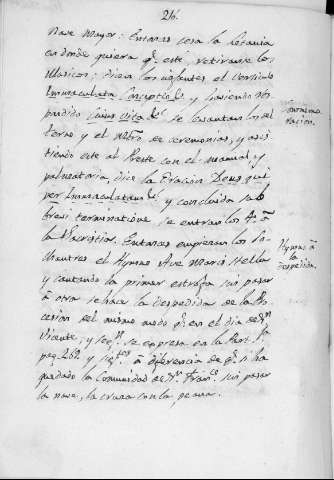 216.
Nave Mayor: Entonces cesa la Letania
en donde quiera q.e este, retiranse los
Musicos; dicen los infantes el Versiculo
Immaculata Conceptio &c. y haviendo res
pondido Cuius vita &c. se levantan los del
terno y el Mtro. de ceremonias, y asis
tiendo este al Preste con el manual, y
palmatoria, dice la Oracion Deus qui
per Immaculatam &c. y concluida sub
brevi terminatione, se entran los
la Sacristia. Entonces empiezan los So-
chantres el Hymno Ave Maris Stella
y cantando la primer estrofa sin pasar
à otra se hace la despedida de la Pro
cesion del mismo modo q.e en el dia de S.n
Vicente, y seg.n se expresa en la Part. 1.a
pag. 262 y sig.tes à diferencia de q.e si ha
quedado la Comunidad de S.n Fran.co sin pasar
la nave, la cruza con la peana.
Hymno à
la
despedida.